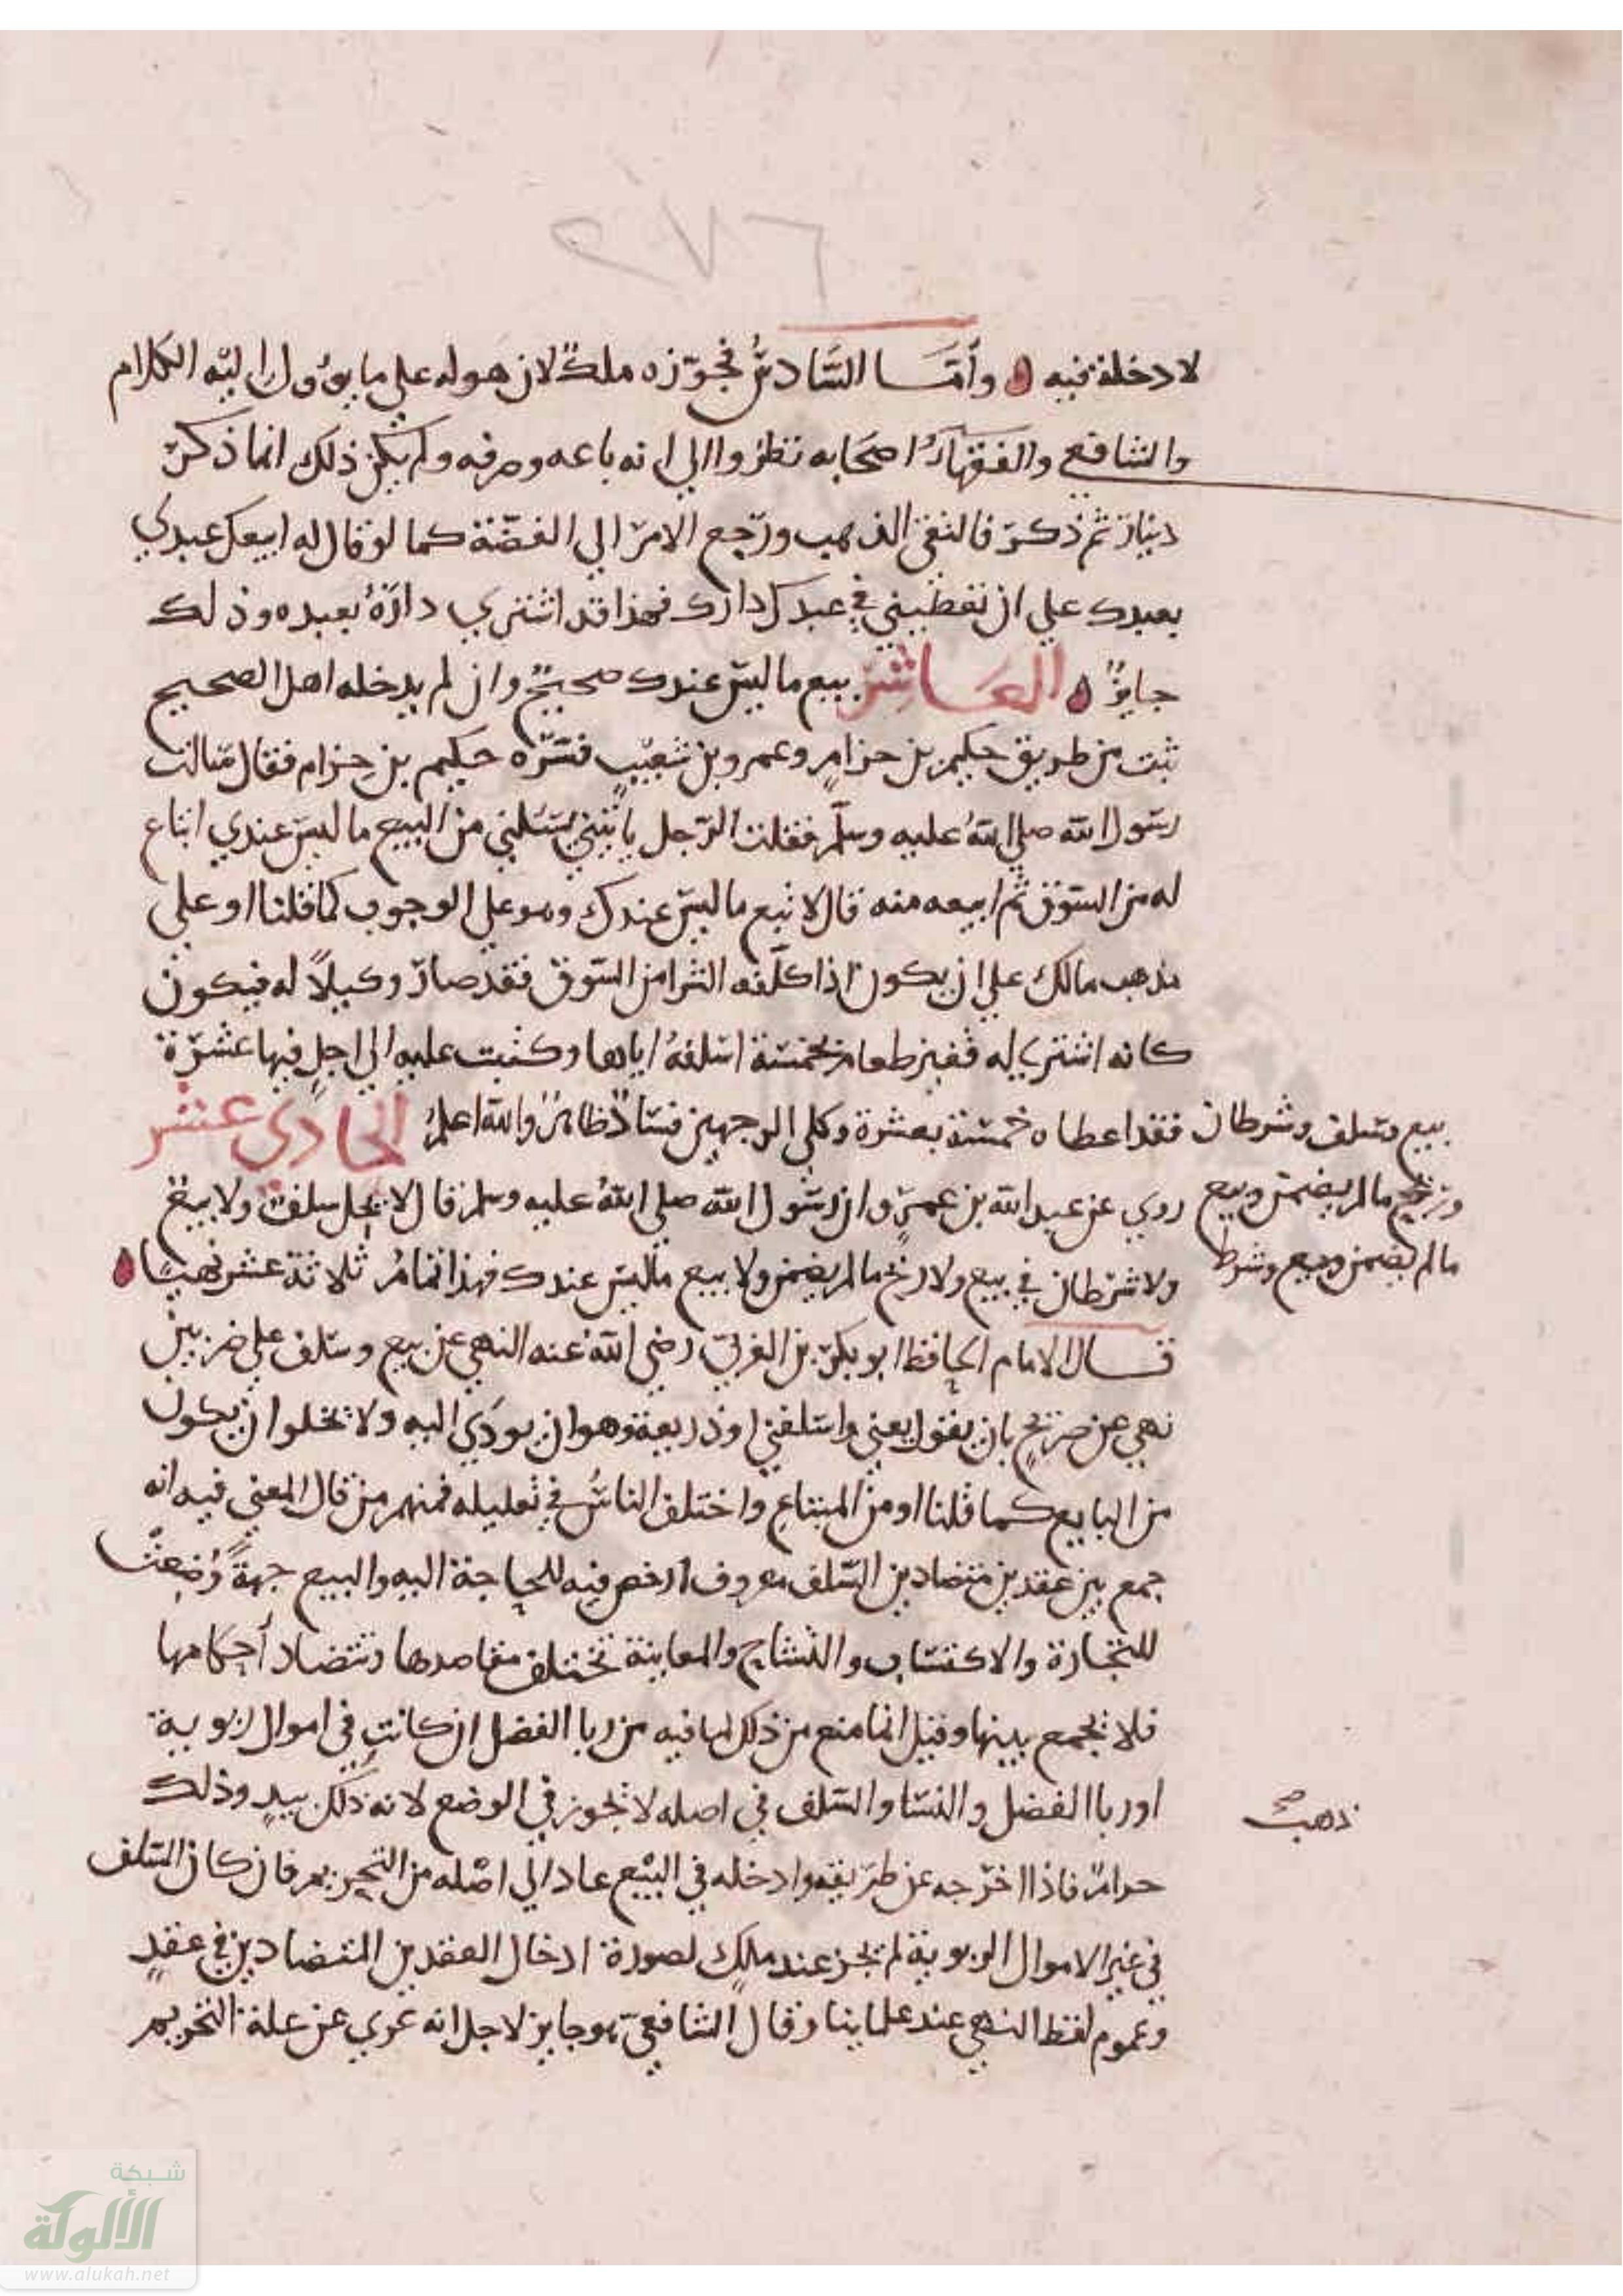 لا دخلة فيه وأمّا السَّادسُ فجوّزه ملكٌ لان هوله على ما يوول اليه الكلام
والشافعي والفقهآءُ اصحابه نظروا الى انه باعه وصرفه ولم يكن ذلك انما ذكر
دينار ثم ذكر فالنفى الذهب ورجع الامر الي الفضّة كما لو قال له ابيعك عبدي
بعبدك على ان تعطيني في عبدك دارك فهذا قد اشترى دارَهُ بعبده وذلك
جايزٌ العَاشرُ بيع ما ليس عندك صحيحٌ وان لم يدخله اهل الصحيح
ثبت من طريق حكيم بن حزامٍ وعمرو بن شعيبٍ فسّره حكيم بن حزام فقال سالت
رسول الله صلى اللهُ عليه وسلّم فقلت الرّجل ياتيني يسلني من البيع ما ليس عندي ابتاع
له من السوق ثم ابيعه منه قال لا تبع ما ليس عندك وهو على الوجوب كما قلنا او على
مذهب مالك على ان يكون اذا كلّفه الشرا من السّوق فقد صار وكيلاً له فيكون
كانه اشترى له قفيز طعام بخمسة اسلفهُ اياها وكتبت عليه الى اجلٍ فيها عشرة
فقد اعطاه خمسة بعشرة وكلى الوجهين فسادٌ ظاهرٌ والله اعلمُ الحادي عشر
بيع وسلف وشرطان
روي عن عبد الله بن عمرٍو ان رسول الله صلى اللهُ عليه وسلم قال لا يحل سلفٌ ولا بيعٌ
وربح ما لم يضمن وبيع
ولا شرطان في بيع ولا ربح ما لم يضمن ولا بيع ما ليس عندك فهذا تمامُ ثلاثة عشر نهيًا
ما لم يضمن وبيع وشرط
قال الامام الحافظ ابو بكر بن العربيّ رضي اللهُ عنه النهي عن بيع وسلف على ضربين
نهي عن صريحٍ بان يقول بعني واسلفني او ذريعة وهو ان يودّي اليه ولا يخلوا ان يكون
من البايع كما قلنا او من المبتاع واختلف الناسُ في تعليله فمنهم من قال المعنى فيه انه
جمع بين عقدين متضادين السّلف معروف ارخص فيه للحاجة اليه والبيع جهةً وُضعتْ
للتجارة والاكتساب والتشاح والمغابنة تختلف مقاصدها وتتضاد أحكامها
فلا يجمع بينها وقيل انما منع من ذلك لما فيه من ربا الفضل ان كانتِ في اموال ربوية
او ربا الفضل والنسا والسلف في اصله لا يجوز في الوضع لانه ذلك بيدٍ وذلك
ذهب صح
حرامٌ فاذا اخرجه عن طريقه وادخله في البيْع عاد الى اصْله من التحريم فان كان السّلف
في غير الاموال الربوية لم يجز عند ملِك لصورة ادخال العقدين المتضادين في عقدٍ
وعموم لفظ النهي عند علماينا وقال الشافعيّ هو جايز لاجل انه عري عن علة التحريم
شبكة
الألوكة
www.alukah.net